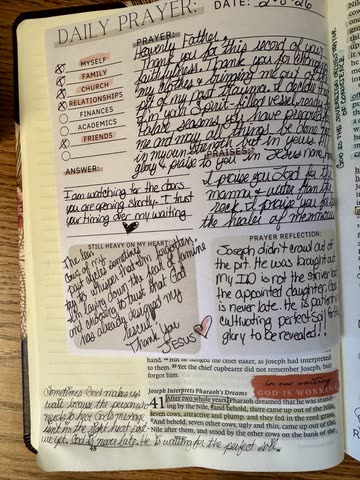 DAILY PRAYER:
DATE: 2-8-26
X MYSELF
X FAMILY
X CHURCH
X RELATIONSHIPS
FINANCES
ACADEMICS
X FRIENDS
PRAYER:
Heavenly Father,
Thank you for this record of your
faithfulness. Thank you for
my clothes & bringing me out of the
pit of my past trauma. I declare that
I'm your Spirit-filled vessel ready
seasons you have prepared
me and may all things be done not
in my own strength but in yours. All
glory & praise to you in Jesus name,
PRAISES:
I praise you Lord for the
manna & water from the
rock. I praise you for
the healer of
ANSWER:
I am watching for the doors
you are opening shortly. I trust
your timing over my waiting.
STILL HEAVY ON MY HEART
The lion
of my
past cycles sometimes
to whisper that I'm forgotten.
I'm laying down the fear of famine
and choosing to trust that God
has already designed my
rescue!
Thank You
JESUS
PRAYER REFLECTION:
Joseph didn't crawl out of
the pit. He was brought out.
My ID is not the striver but
the appointed daughter. God
is never late. He is patiently
cultivating perfect soil for His
glory to be revealed!!
hand. But he hanged the chief baker, as Joseph had interpreted
to them. 23 Yet the chief cupbearer did not remember Joseph, but
forgot him.
in our waiting
GOD IS WORKING
Joseph Interprets Pharaoh's Dreams
41 After two whole years, Pharaoh dreamed that he was stand-
ing by the Nile, and behold, there came up out of the Nile,
seven cows, attractive and plump, and they fed in the reed grass.
And behold, seven other cows, ugly and thin, came up out of the
Nile after them, and stood by the other cows on the bank of the
Sometimes God makes us
wait because the person who
needs to hear God's message
isn't in the right heart post-
ure yet. God is never late. He is waiting for the perfect soil.
48